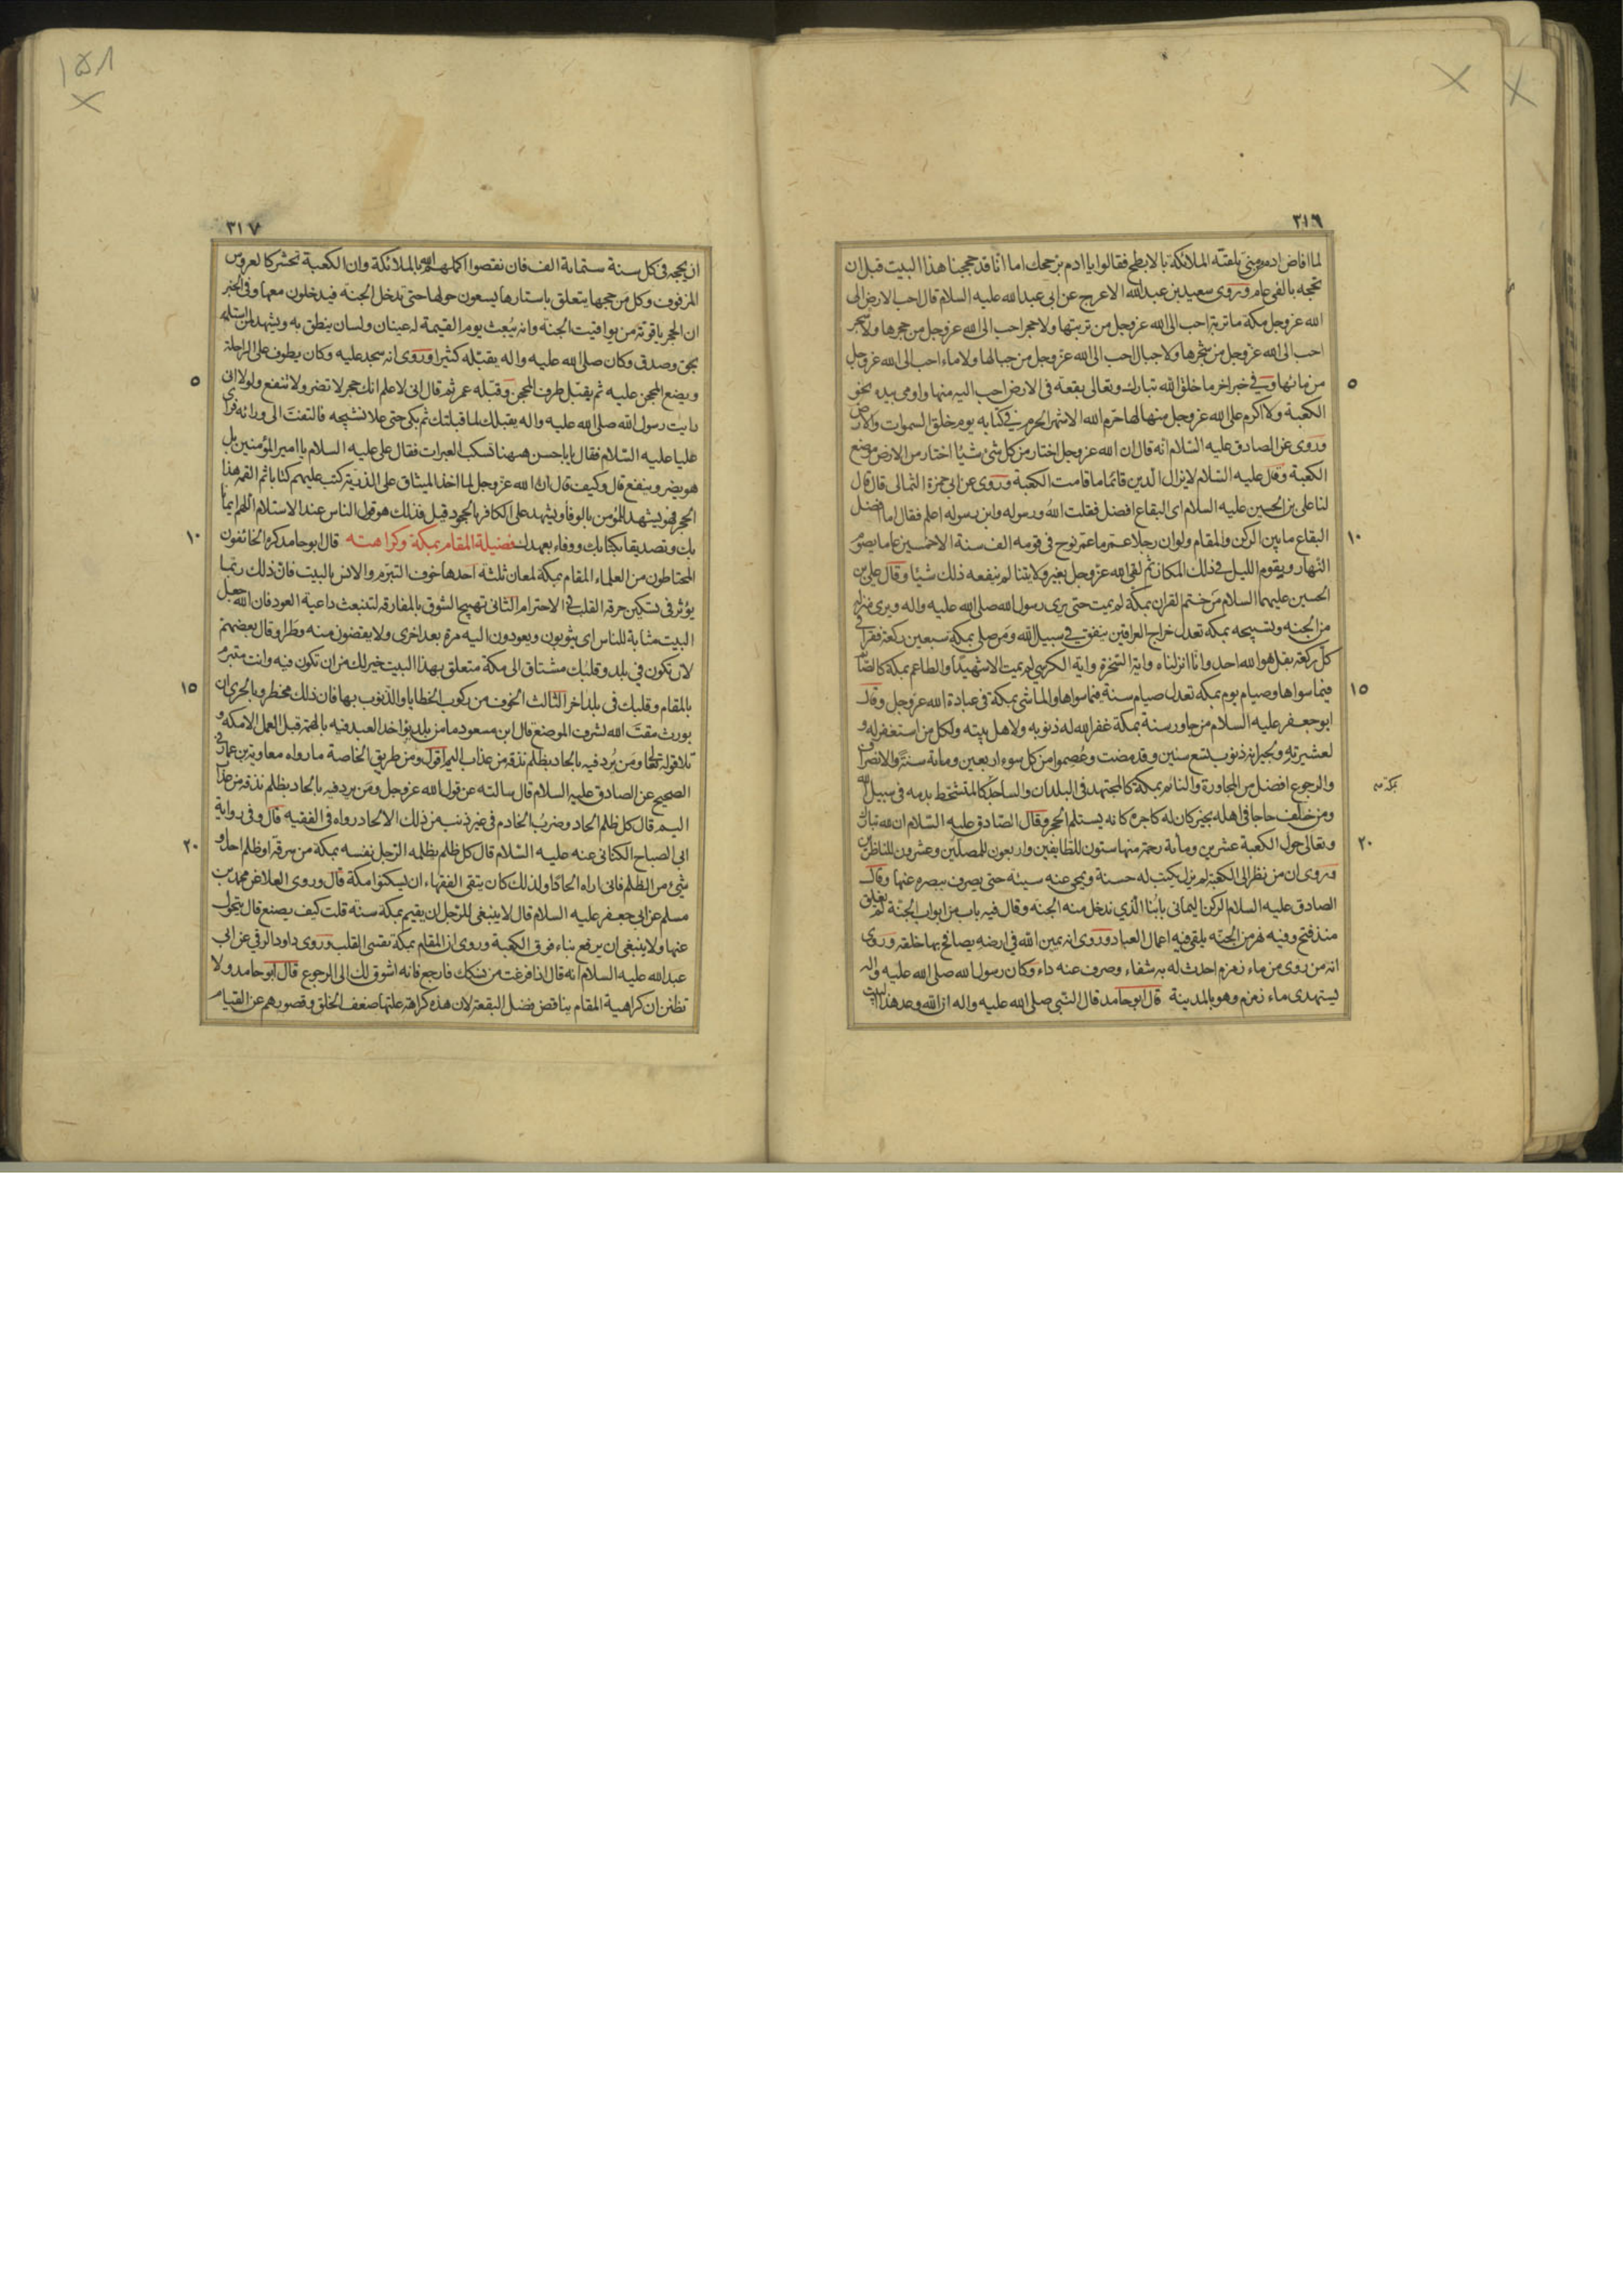 ٣١٦
لما افاض ادم من منى تلقته الملائكة بالابطح فقالوا يا ادم بر حجك اما انا قد حججنا هذا البيت قبل ان
تحجه بالفى عام وروى سعيد بن عبدالله الاعرج عن ابى عبدالله عليه السلام قال احب الارض الى
الله عز وجل مكة ما تربة احب الى الله عز وجل من تربتها ولا حجر احب الى الله عز وجل من حجرها ولا شجر
احب الى الله عز وجل من شجرها ولا جبال احب الى الله عز وجل من جبالها ولا ماء احب الى الله عز وجل
٥
من مائها وفي خبر اخر ما خلق الله تبارك وتعالى بقعة فى الارض احب اليه منها واومى بيده نحو
الكعبة ولا اكرم على الله عز وجل منها لها حرم الله الاشهر الحرم في كتابه يوم خلق السموات والارض
وروى عن الصادق عليه السلام انه قال ان الله عز وجل اختار من كل شئ شيئا اختار من الارض موضع
الكعبة وقال عليه السلام لا يزال الدين قائما ما قامت الكعبة وروى عن ابي حمزة الثمالى قال قال
لنا على بن الحسين عليه السلام اى البقاع افضل فقلت الله ورسوله وابن رسوله اعلم فقال اما افضل
١٠
البقاع ما بين الركن والمقام ولو ان رجلا عمر ما عمر نوح فى قومه الف سنة الا خمسين عاما يصوم
النهار ويقوم الليل في ذلك المكان ثم لقى الله عز وجل بغير ولايتنا لم ينفعه ذلك شيئا وقال على بن
الحسين عليهما السلام من ختم القران بمكة لم يمت حتى يرى رسول الله صلى الله عليه واله ويرى منزله
من الجنه وتسبيحه بمكه تعدل خراج العراقين ينفق في سبيل الله ومن صلى بمكة سبعين ركعة فقرا فى
كل ركعة بقل هو الله احد وانا انزلناه واية السخرة واية الكرسى لم يمت الا شهيدا والطاعم بمكة كالصائم
١٥
فيما سواها وصيام يوم بمكه تعدل صيام سنة فيما سواها والماشى بمكة فى عبادة الله عز وجل وقال
ابو جعفر عليه السلام من جاور سنة بمكة غفر الله له ذنوبه ولاهل بيته ولكل من استغفر له و
لعشيرته ولجيرانه ذنوب تسع سنين وقد مضت وعصموا من كل سوء اربعين ومائة سنة والانصراف
والرجوع افضل من المجاورة والنائم بمكة كالمجتهد فى البلدان والساجد كالمتشحط بدمه فى سبيل الله
ومن خلف حاجا فى اهله بخير كان له كاجره كانه يستلم الحجر وقال الصادق عليه السلام ان لله تبارك
٢٠
وتعالى حول الكعبة عشرين ومائة رحمة منها ستون للطايفين واربعون للمصلين وعشرون للناظرين
وروى ان من نظر الى الكعبة لم يزل يكتب له حسنة ويمحى عنه سيئة حتى يصرف ببصره عنها وقال
الصادق عليه السلام الركن اليمانى بابنا الذي ندخل منه الجنه وقال فيه باب من ابواب الجنة لم يغلق
منذ فتح وفيه نهر من الجنه يلقى فيه اعمال العباد وروى انه يمين الله في ارضه يصافح بها خلقه وروى
انه من روى من ماء زمزم احدث له به شفاء وصرف عنه داء وكان رسول الله صلى الله عليه واله
يستهدى ماء زمزم وهو بالمدينة قال ابو حامد قال النبى صلى الله عليه واله ان الله وعد هذا البيت
١٥٨
٣١٧
ان يحجه فى كل سنة ستماية الف فان نقصوا اكملهم الله بالملائكة وان الكعبة تحشر كالعروس
المزفوف وكل من حجها يتعلق باستارها يسعون حولها حتى تدخل الجنة فيدخلون معها وفى الخبر
ان الحجر ياقوتة من يواقيت الجنة وانه يبعث يوم القيمة له عينان ولسان ينطق به ويشهد لمن استلمه
بحق وصدق وكان صلى الله عليه واله يقبله كثيرا وروى انه سجد عليه وكان يطوف على الراحلة
٥
ويضع المحجن عليه ثم يقبل طرف المحجن وقبله عمر ثم قال انى لاعلم انك حجر لا تضر ولا تنفع ولولا انى
رايت رسول الله صلى الله عليه واله يقبلك لما قبلتك ثم بكى حتى علا نشيجه فالتفت الى ورائه فراى
عليا عليه السلام فقال يا با حسن ههنا تسكب العبرات فقال على عليه السلام يا امير المؤمنين بل
هو يضر وينفع قال وكيف قال ان الله عز وجل لما اخذ الميثاق على الذرية كتب عليهم كتابا ثم القمه هذا
الحجر فهو يشهد للمؤمن بالوفاء ويشهد على الكافر بالجحود قيل فذلك هو قول الناس عند الاستلام اللهم ايمانا
١٠
بك وتصديقا بكتابك ووفاء بعهدك فضيلة المقام بمكة وكراهته قال ابو حامد كره الخائفون
المحتاطون من العلماء المقام بمكة لمعان ثلثة احدها خوف التبرم والانس بالبيت فان ذلك ربما
يؤثر فى تسكين حرقة القلب في الاحترام الثانى تهييج الشوق بالمفارقة لتنبعث داعية العود فان الله جعل
البيت مثابة للناس اى يثوبون ويعودون اليه مرة بعد اخرى ولا يقضون منه وطرا وقال بعضهم
لان تكون في بلد وقلبك مشتاق الى مكة متعلق بهذا البيت خير لك من ان تكون فيه وانت متبرم
١٥
بالمقام وقلبك فى بلد اخر الثالث الخوف من ركوب الخطايا والذنوب بها فان ذلك مخطر وبالحرى ان
يورث مقت الله لشرف الموضع قال ابن مسعود ما من بلد يؤاخذ العبد فيه بالهم قبل العمل الا مكة و
تلا قوله تعالى ومن يرد فيه بالحاد بظلم نذقه من عذاب اليم اقول ومن طريق الخاصة ما رواه معاوية بن عمار فى
الصحيح عن الصادق عليه السلام قال سالته عن قول الله عز وجل ومن يرد فيه بالحاد بظلم نذقه من عذاب
اليم قال كل ظلم الحاد وضرب الخادم فى غير ذنب من ذلك الالحاد رواه فى الفقيه قال وفى رواية
٢٠
ابى الصباح الكنانى عنه عليه السلام قال كل ظلم يظلمه الرجل نفسه بمكة من سرقة او ظلم احد او
شئ من الظلم فانى اراه الحادا ولذلك كان يتقى الفقهاء ان يسكنوا مكة قال وروى العلا عن محمد بن
مسلم عن ابى جعفر عليه السلام قال لا ينبغى للرجل ان يقيم بمكة سنة قلت كيف يصنع قال يتحول
عنها ولا ينبغى ان يرفع بناء فوق الكعبة وروى ان المقام بمكة تقسى القلب وروى داود الرقي عن ابى
عبد الله عليه السلام انه قال اذا فرغت من نسكك فارجع فانه اشوق لك الى الرجوع قال ابو حامد ولا
تظنن ان كراهية المقام يناقض فضل البقعة لان هذه كراهة علتها ضعف الخلق وقصورهم عن القيام